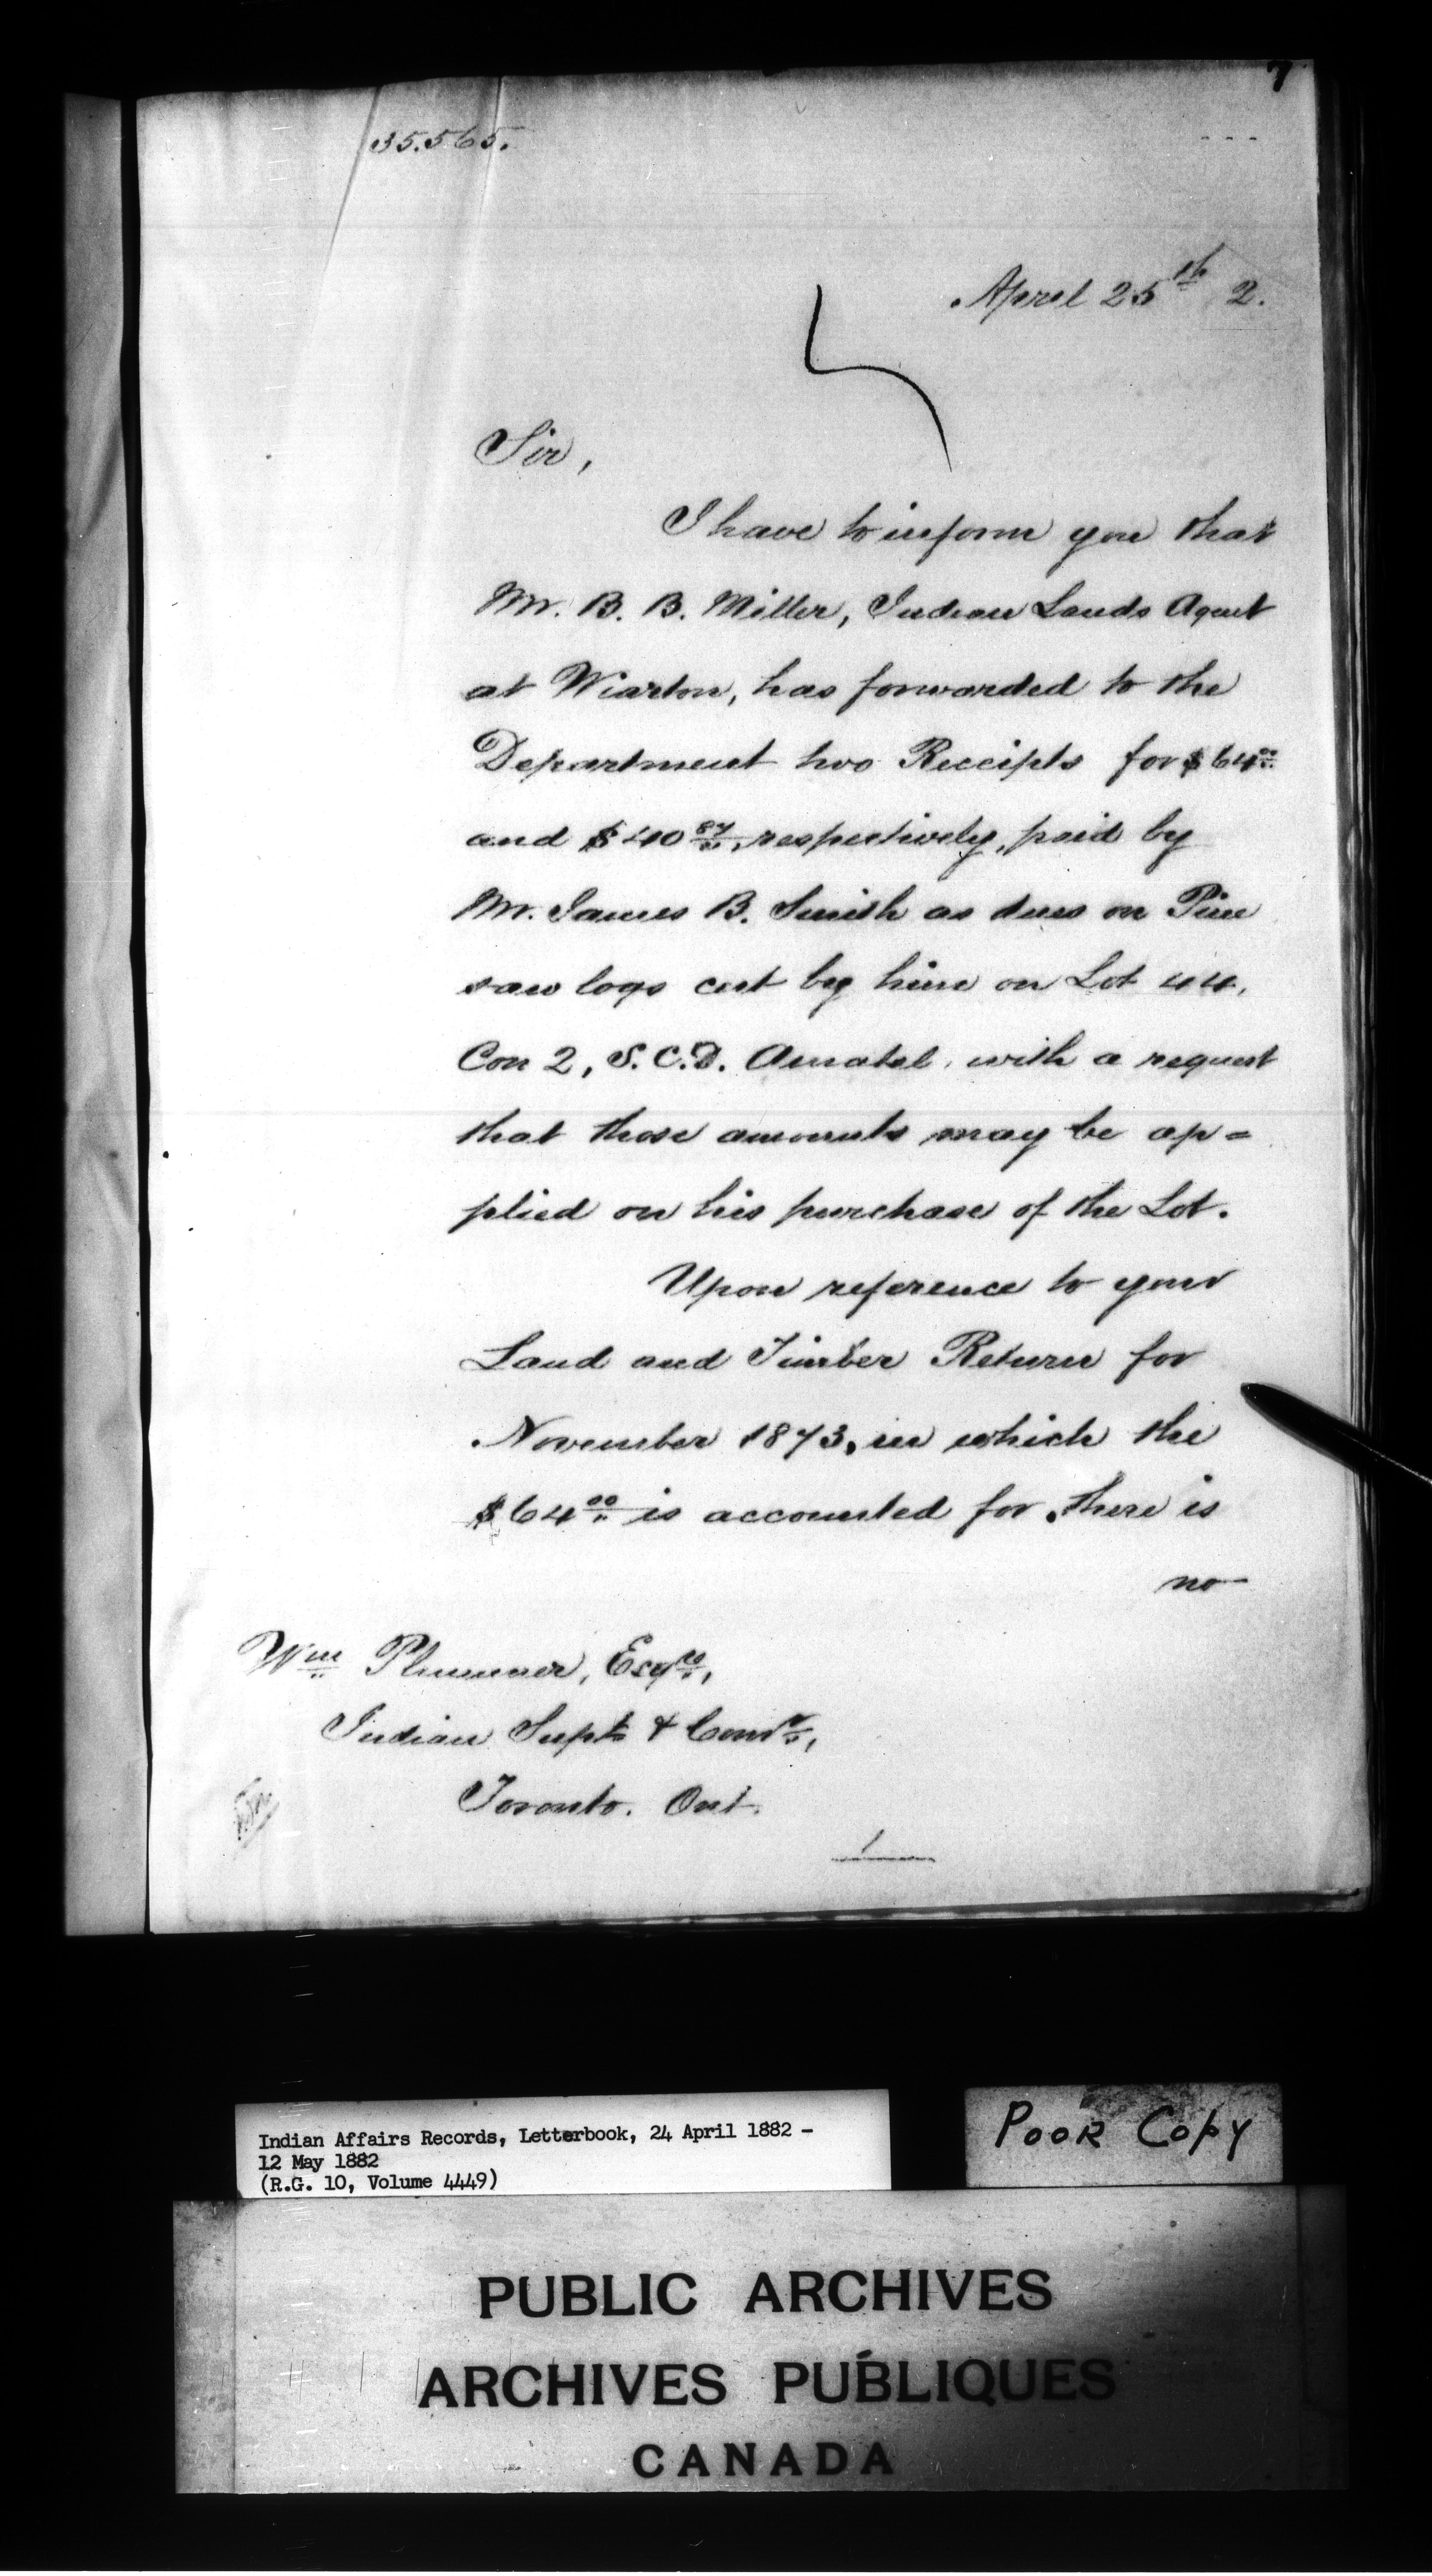 7
35.565.
April 25th 2.
Sir,
I have to inform you that
Mr. B. B. Miller, Indian Lands Agent
at Wiarton, has forwarded to the
Department two Receipts for $64.00
and $40.87, respectively, paid by
Mr. James B. Smith as dues on Pine
saw logs cut by him on Lot 44,
Con 2, S.C.D. Amabel, with a request
that those amounts may be ap=
plied on his purchase of the Lot.
Upon reference to your
Land and Timber Return for
November 1873, in which the
$64.00 is accounted for, there is
no
Wm Plummer, Esqre,
Indian Supt & Comr,
Toronto. Ont.
Indian Affairs Records, Letterbook, 24 April 1882 -
12 May 1882
(R.G. 10, Volume 4449)
POOR COPY
PUBLIC ARCHIVES
ARCHIVES PUBLIQUES
CANADA